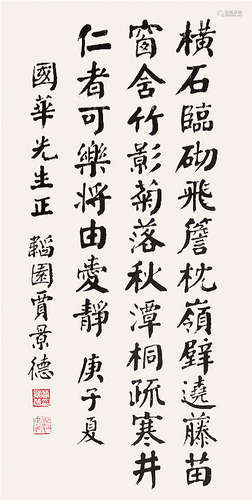 橫石臨砌飛簷枕嶺壁遶藤苗
窗含竹影菊落秋潭桐疏寒井
仁者可樂將由愛靜 庚子夏
國華先生正 韜園賈景德